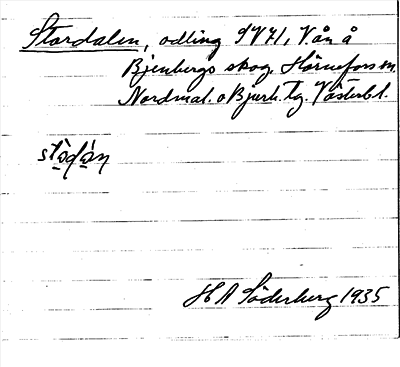 Stordalen, odling SV71, V. ån å
Bjenbergs skog. Hörnefors sn.
Nordmal. o Bjurh. tg. Västerbt.
stọ̀dạ́ņ
H A Söderberg 1935